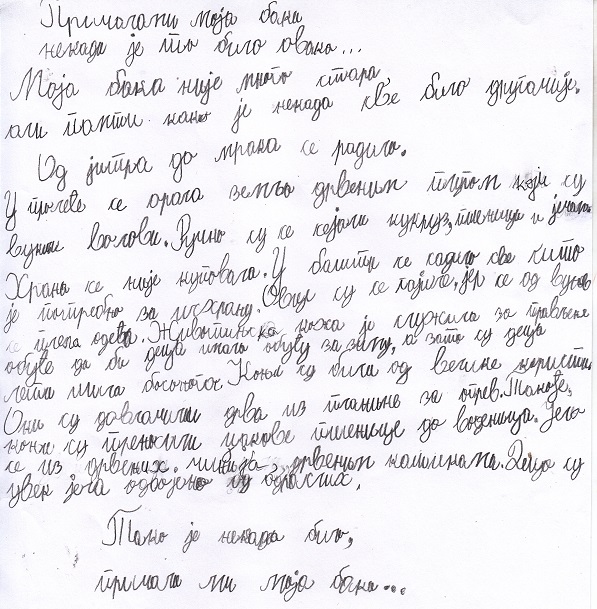 Причалати моја бака
некада је то било овако...
Моја бака није много стара,
али памти како је некада све било другачије.
Од јутра до мрака се радило.
У пролеће се орала земља дрвеним плугом који су
вукли волови. Ручно су се сејали кукуруз, пшеница и јечам.
Храна се није куповала. У башти се садило све што
је потребно за исхрану. Овце су се гајиле, јер се од вуне
се плела одећа. Животињска кожа је служила за прављење
обуће да би деца имала обућу за зиму, а зато су деца
лети ишла босонога. Коњи су били од велике користи.
Они су довлачили дрва из планине за огрев. Такође,
коњи су преносили џакове пшенице до воденица. Јело
се из дрвених чинија, дрвеним кашикама. Деца су
увек јела одвојено од одраслих.
Тако је некада било,
причала ми моја бака...